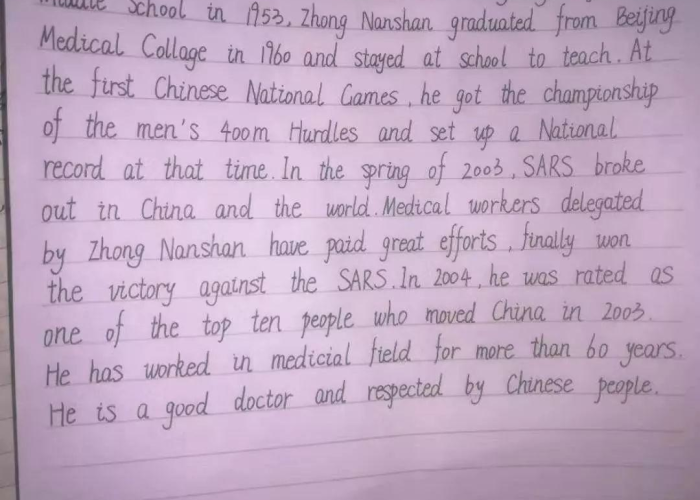 School in 1953, Zhong Nanshan graduated from Beijing
Medical Collage in 1960 and stayed at school to teach. At
the first Chinese National Games, he got the championship
of the men's 400m Hurdles and set up a National
record at that time. In the spring of 2003, SARS broke
out in China and the world. Medical workers delegated
by Zhong Nanshan have paid great efforts, finally won
the victory against the SARS. In 2004, he was rated as
one of the top ten people who moved China in 2003.
He has worked in medicial field for more than 60 years.
He is a good doctor and respected by Chinese people.